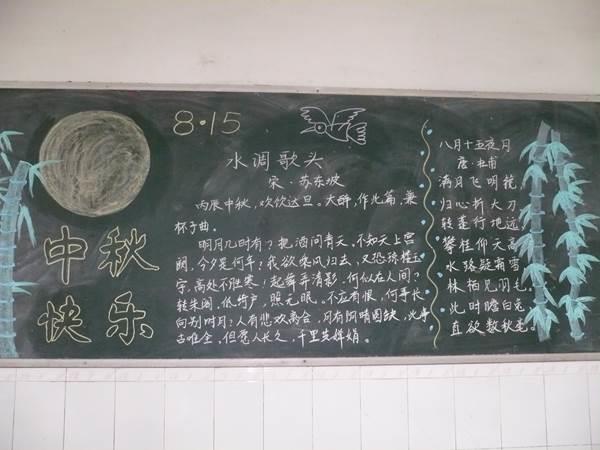 中秋
快乐
8·15
水调歌头
宋·苏东坡
丙辰中秋,欢饮达旦。大醉,作此篇,兼
怀子由。
明月几时有?把酒问青天,不知天上宫
阙,今夕是何年?我欲乘风归去,又恐琼楼玉
宇,高处不胜寒!起舞弄清影,何似在人间?
转朱阁,低绮户,照无眠。不应有恨,何事长
向别时月?人有悲欢离合,月有阴晴圆缺,此事
古难全,但愿人长久,千里共婵娟。
八月十五夜月
唐·杜甫
满月飞明镜,
归心折大刀
转蓬行地远,
攀桂仰天高
水路疑霜雪
林栖见羽毛,
此时瞻白兔
直欲数秋毫。